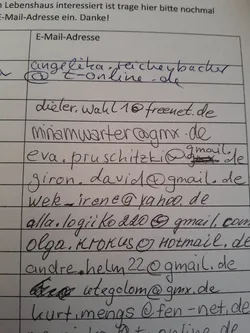 Lebenshaus interessiert ist trage hier bitte nochmal
E-Mail-Adresse ein. Danke!
E-Mail-Adresse
angelika.reicheybacher
@t-online.de
dieter.wahl1@freenet.de
miriamwarter@gmx.de
eva.pruschitzki@gmail.de
giron.david@gmail.de
wek_irene@yahoo.de
alla.logiiko220@gmail.com
olga.krokus@hotmail.de
andre.helm22@gmail.de
utegolom@gmx.de
kurt.mengs@fen-net.de
online.de